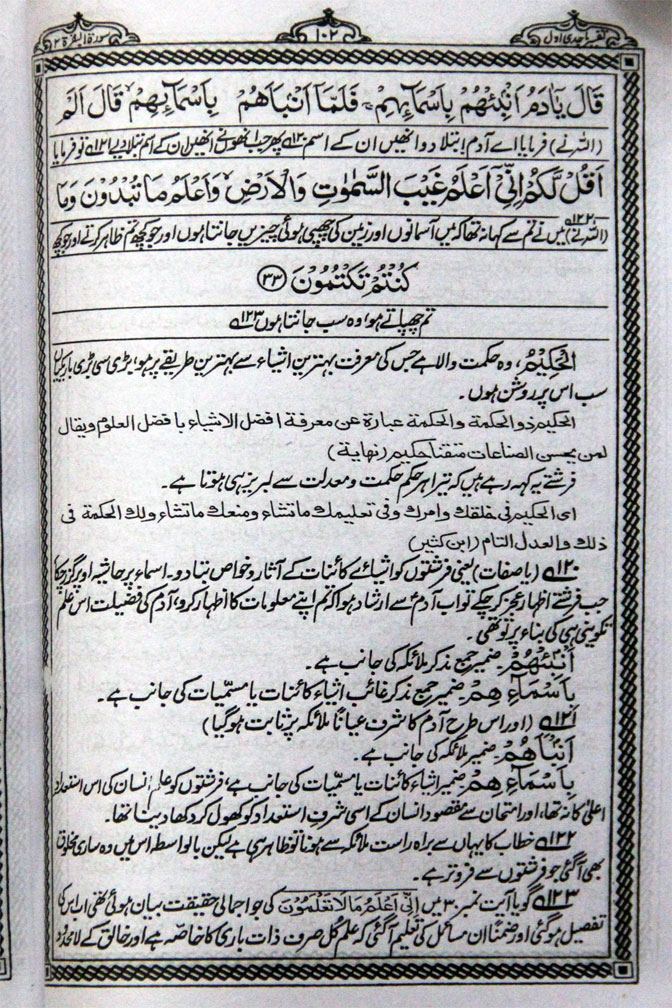 تفسیر ماجدی اول
۱۰۲
سورۃ البقرۃ ۲
قَالَ يٰٓاٰدَمُ اَنْۢبِئْهُمْ بِاَسْمَآئِهِمْ ۚ فَلَمَّآ اَنْۢبَاَهُمْ بِاَسْمَآئِهِمْ قَالَ اَلَمْ
(اللہ نے) فرمایا اے آدم! بتلا دو انھیں ان کے اسم ۱۲۰ پھر جب انھوں نے انھیں ان کے اسم بتلا دیے ۱۲۱ تو فرمایا
اَقُلْ لَّكُمْ اِنِّيْٓ اَعْلَمُ غَيْبَ السَّمٰوٰتِ وَالْاَرْضِ ۙ وَاَعْلَمُ مَا تُبْدُوْنَ وَمَا
(اللہ نے) ۱۲۲ میں نے تم سے کہا نہ تھا کہ میں آسمانوں اور زمین کی چھپی ہوئی چیزیں جانتا ہوں اور جو کچھ تم ظاہر کرتے اور جو کچھ
كُنْتُمْ تَكْتُمُوْنَ ﴿۳۳﴾
تم چھپاتے ہو، وہ سب جانتا ہوں ۱۲۳
الْحَكِيْمُ، وہ حکمت والا ہے جس کی معرفت بہترین اشیاء سے بہترین طریقے پر ہو، بڑی سی بڑی باریکیاں
سب اس پر روشن ہوں۔
الحكيم ذو الحكمة والحكمة عبارة عن معرفة افضل الاشياء بافضل العلوم ويقال
لمن يحسن الصناعات متقنا حكيم (نهاية)
فرشتے یہ کہہ رہے ہیں کہ تیرا ہر حکم حکمت و معدلت سے لبریز ہی ہوتا ہے۔
اى الحكيم فى خلقك وامرك وفى تعليمك ما تشاء ومنعك ما تشاء ولك الحكمة فى
ذلك والعدل التام (ابن كثير)
۱۲۰ (یا صفات) یعنی فرشتوں کو اشیائے کائنات کے آثار و خواص بتا دو۔ اسماء پر حاشیہ اوپر گزر چکا
جب فرشتے اظہار عجز کر چکے تو اب آدمؑ سے ارشاد ہوا کہ تم اپنے معلومات کا اظہار کرو، آدم کی فضیلت اس علم
تکوینی ہی کی بناء پر تو تھی۔
اَنْبِئْهُمْ ضمیر جمع مذکر ملائکہ کی جانب ہے۔
بِاَسْمَآءِهِمْ ضمیر جمع مذکر غائب اشیاء کائنات یا مسمّیات کی جانب ہے۔
۱۲۱ (اور اس طرح آدم کا شرف عیاناً ملائکہ پر ثابت ہو گیا)
اَنْبَاَهُمْ ضمیر ملائکہ کی جانب ہے۔
بِاَسْمَآءِهِمْ ضمیر اشیاء کائنات یا مسمّیات کی جانب ہے، فرشتوں کو علم انسان کی اس استعداد
اعلیٰ کا نہ تھا، اور امتحان سے مقصود انسان کے اسی شرفِ استعداد کو کھول کر دکھا دینا تھا۔
۱۲۲ خطاب کا یہاں سے براہ راست ملائکہ سے ہونا تو ظاہر ہی ہے لیکن بالواسطہ اس میں وہ ساری مخلوق
بھی آ گئی جو فرشتوں سے فروتر ہے۔
۱۲۳ گویا آیت نمبر ۳۰ میں اِنِّيْ اَعْلَمُ مَا لَا تَعْلَمُوْنَ کی جو اجمالی حقیقت بیان ہوئی تھی اب اس کی
تفصیل ہو گئی اور ضمناً ان مسائل کی تعلیم آ گئی کہ علم کُل صرف ذات باری کا خاصہ ہے اور خالق کے لامحدود